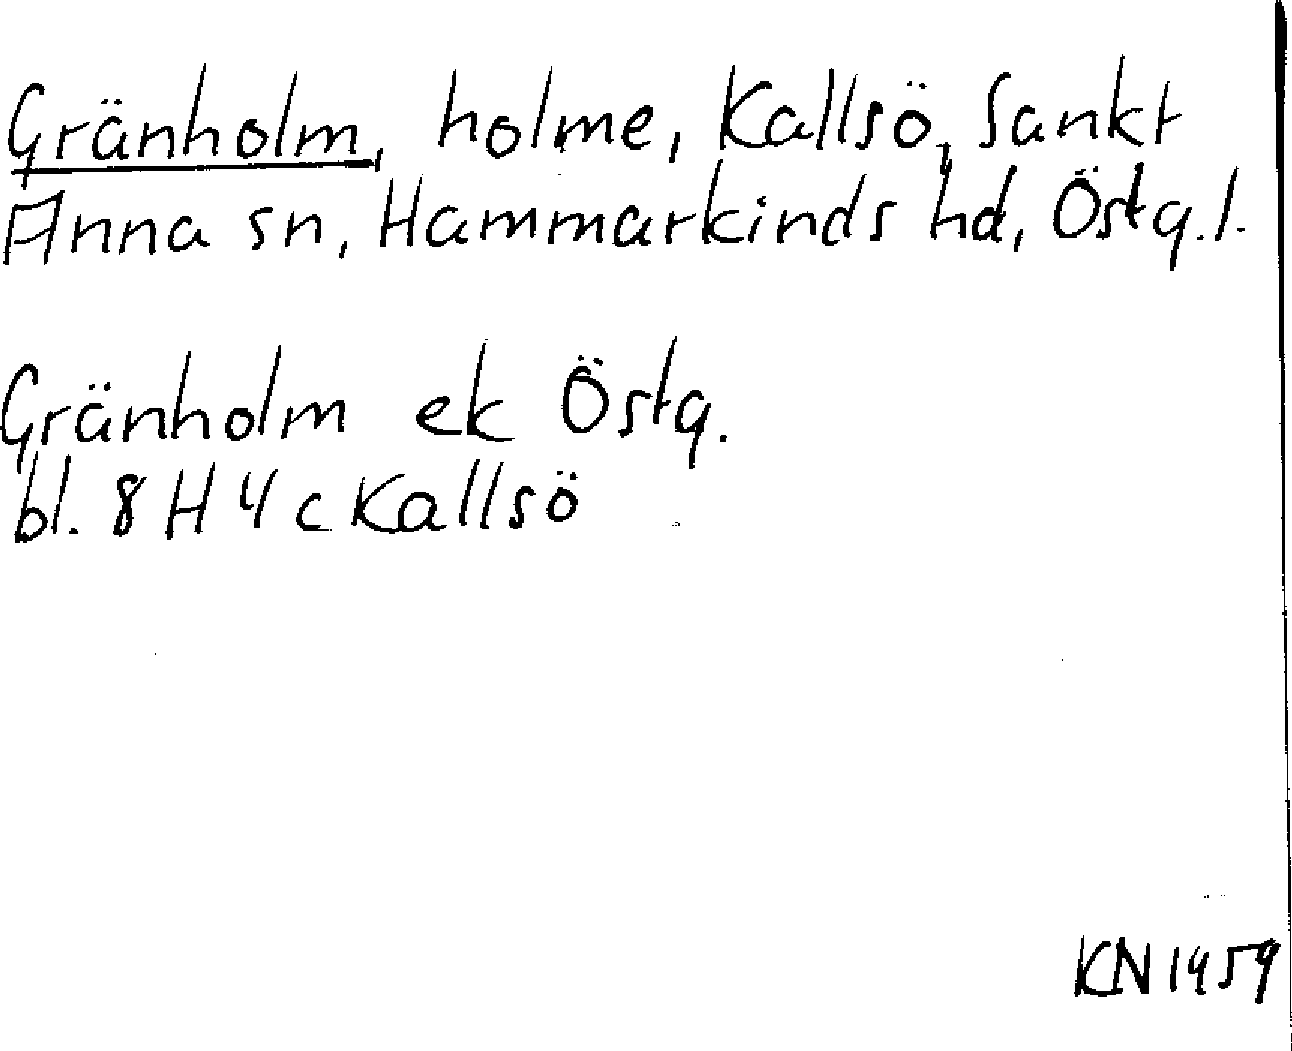 Gränholm, holme, Kallsö, Sankt
Anna sn, Hammarkinds hd, Östg.l.
Gränholm ek Östg.
bl. 8 H 4 c Kallsö
KN 1959